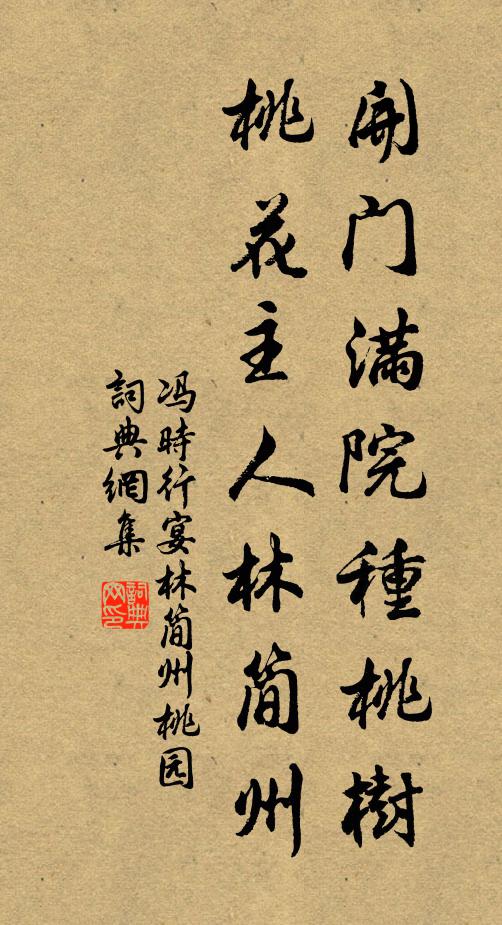 開门满院種桃樹
桃花主人林简州
冯時行宴林简州桃园
詞典網集
詞典网印